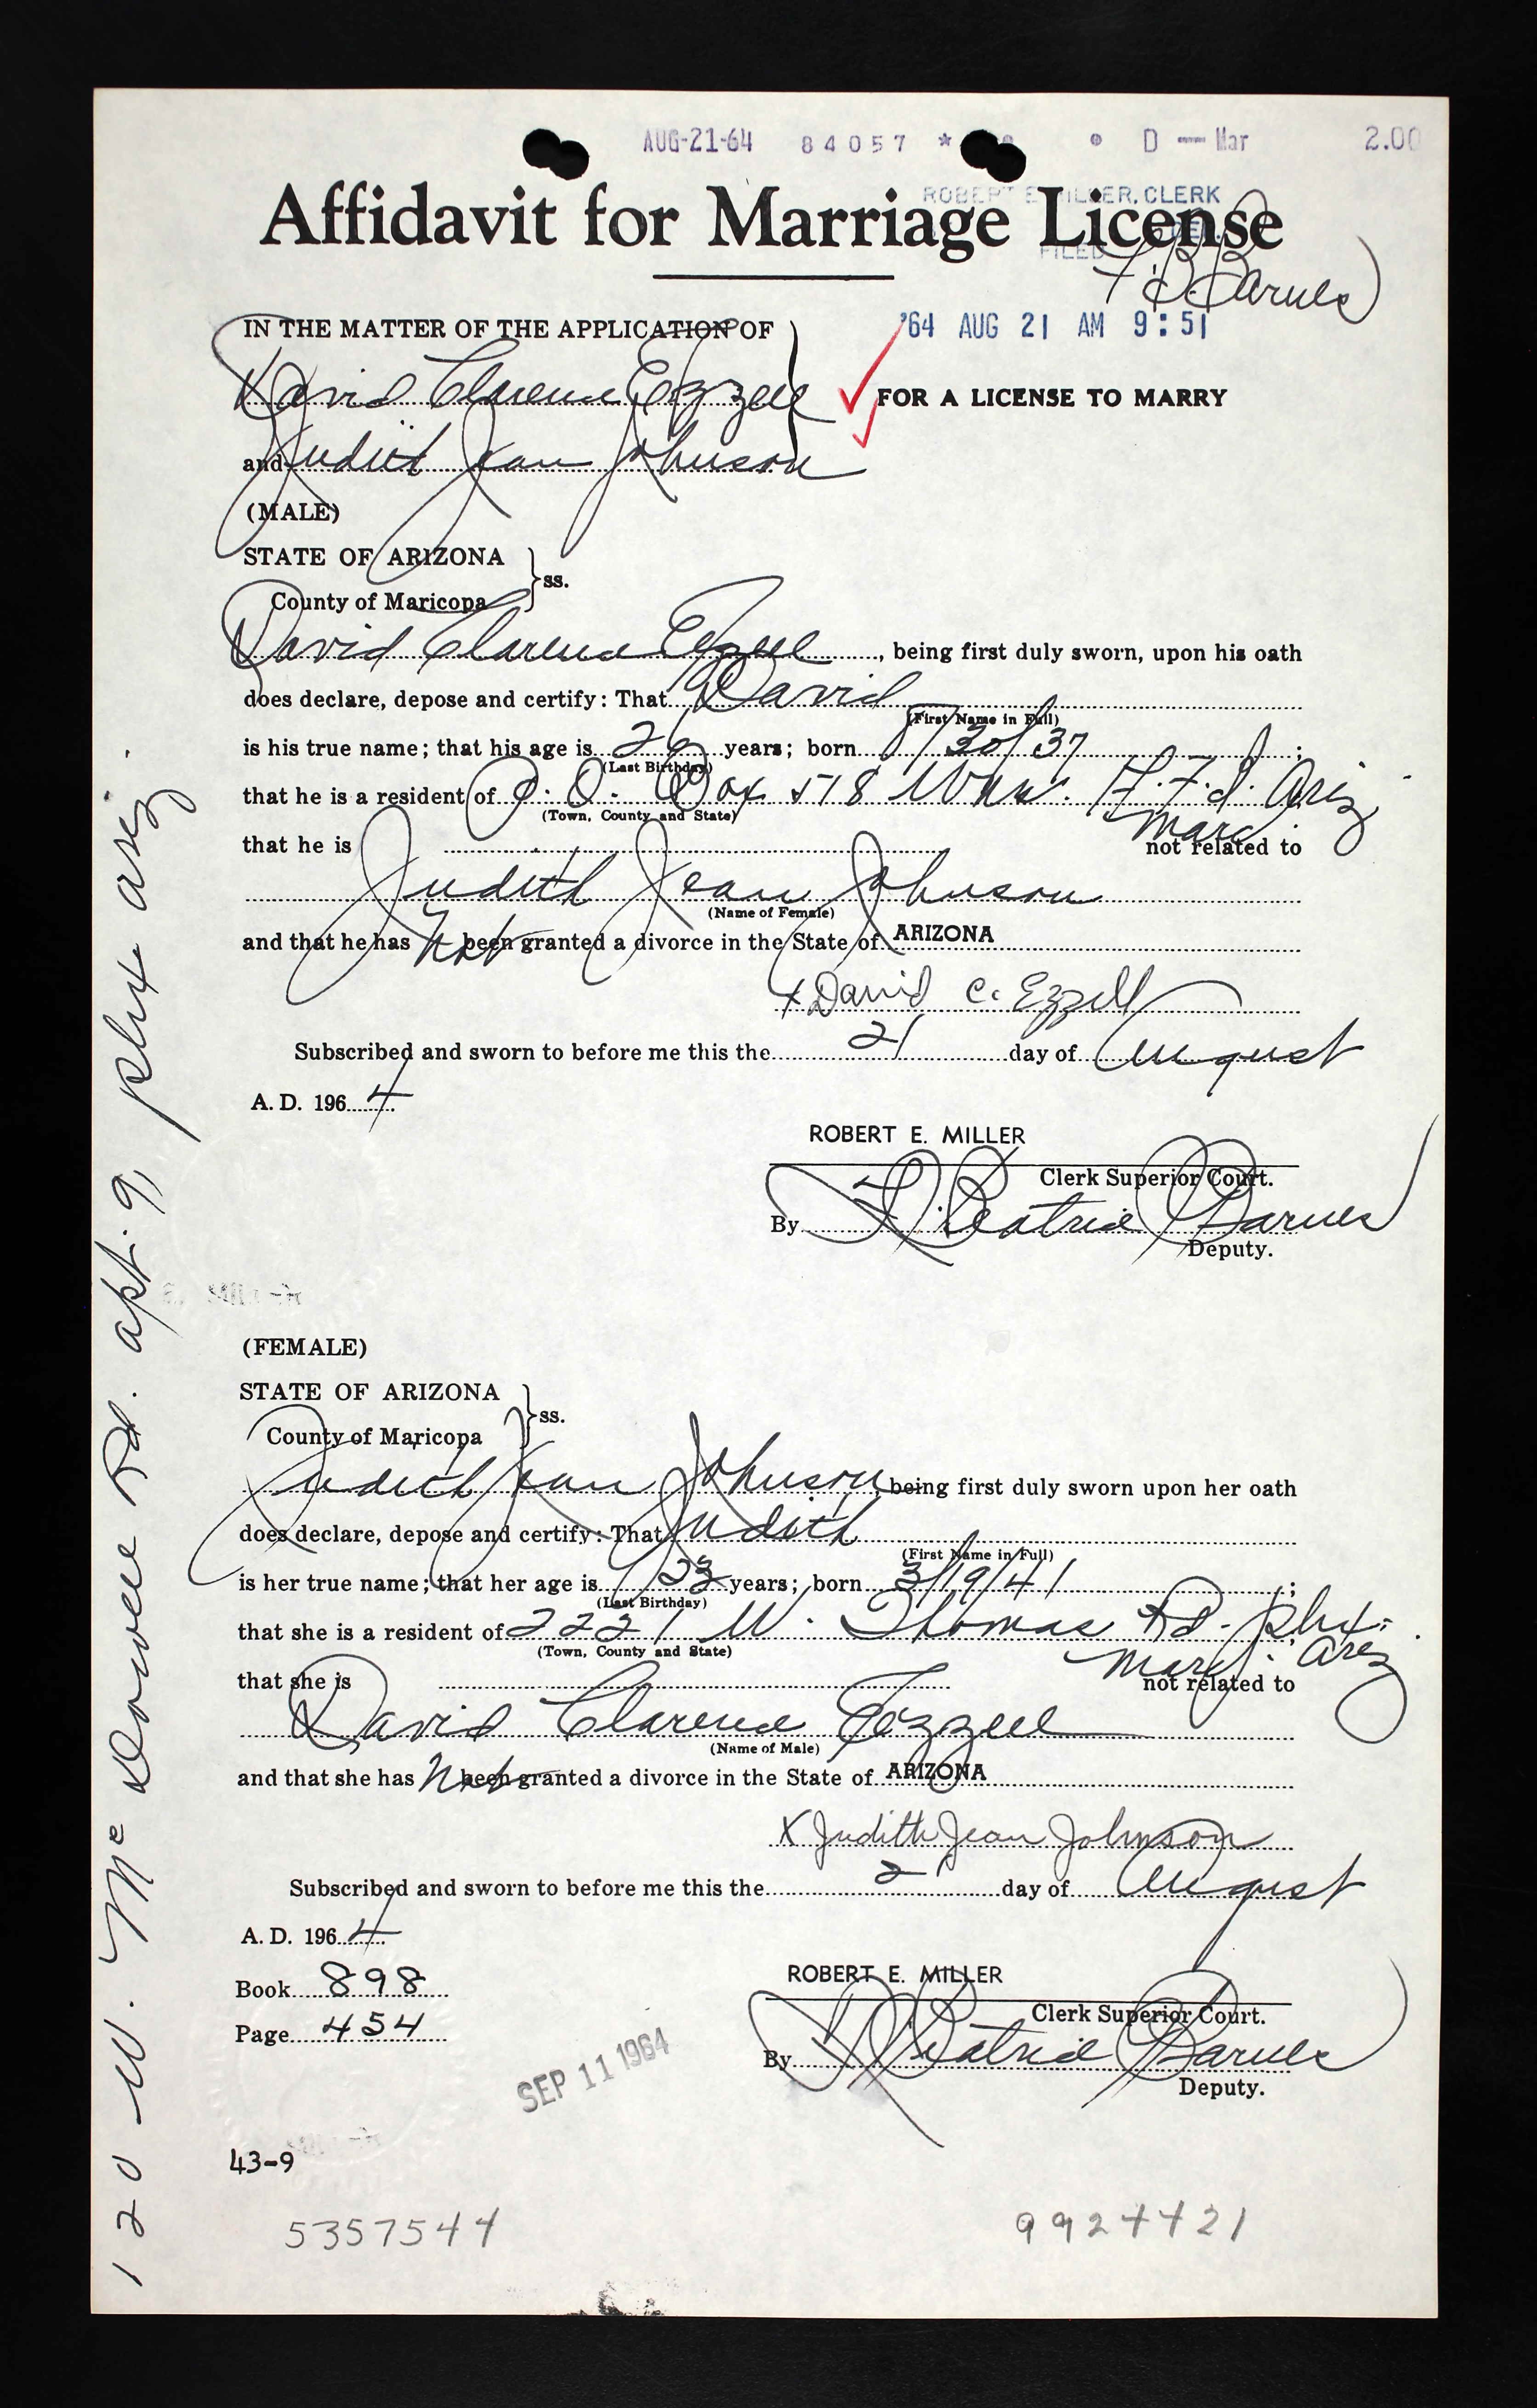 AUG-21-64 84057 * D — Mar 2.00
ROBERT E. MILLER, CLERK
Affidavit for Marriage License
FILED
F. B. Barnes
IN THE MATTER OF THE APPLICATION OF
'64 AUG 21 AM 9:51
David Clarence Ezzell
FOR A LICENSE TO MARRY
and Judith Jean Johnson
(MALE)
STATE OF ARIZONA
ss.
County of Maricopa
David Clarence Ezzell, being first duly sworn, upon his oath
does declare, depose and certify: That David
(First Name in Full)
is his true name; that his age is 26 years; born 8/30/37;
(Last Birthday)
that he is a resident of P. O. Box 518 Ariz
(Town, County and State)
Marc
that he is not related to
Judith Jean Johnson
(Name of Female)
and that he has Not been granted a divorce in the State of ARIZONA
x David C. Ezzell
Subscribed and sworn to before me this the 21 day of August
A. D. 1964
ROBERT E. MILLER
Clerk Superior Court.
By F. Beatrice Barnes
Deputy.
(FEMALE)
STATE OF ARIZONA
ss.
County of Maricopa
Judith Jean Johnson, being first duly sworn upon her oath
does declare, depose and certify: That Judith
(First Name in Full)
is her true name; that her age is 23 years; born 3/19/41;
(Last Birthday)
that she is a resident of 2221 W. Thomas Rd. Phx.
(Town, County and State)
Marc. Ariz
that she is not related to
David Clarence Ezzell
(Name of Male)
and that she has Not been granted a divorce in the State of ARIZONA
X Judith Jean Johnson
Subscribed and sworn to before me this the 21 day of August
A. D. 1964
Book 898
ROBERT E. MILLER
Clerk Superior Court.
Page 454
By F. Beatrice Barnes
Deputy.
SEP 11 1964
43-9
5357544
9924421
120 W. McDowell Rd. apt. 9, phx ariz.